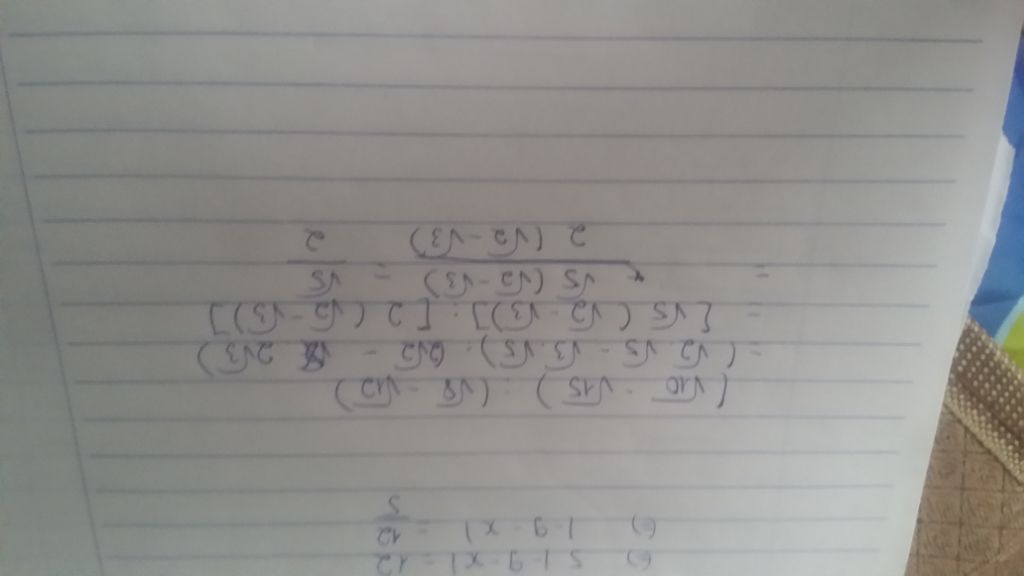 6) 5|-9-x| = 12
6) |-9-x| = 12/5
(√10 - √15) : (√8 - √12)
= (√2·√5 - √3·√5) : (2√2 - 2√3)
= [√5 (√2 - √3)] : [2 (√2 - √3)]
= √5 (√2 - √3) / 2 (√2 - √3) = √5 / 2